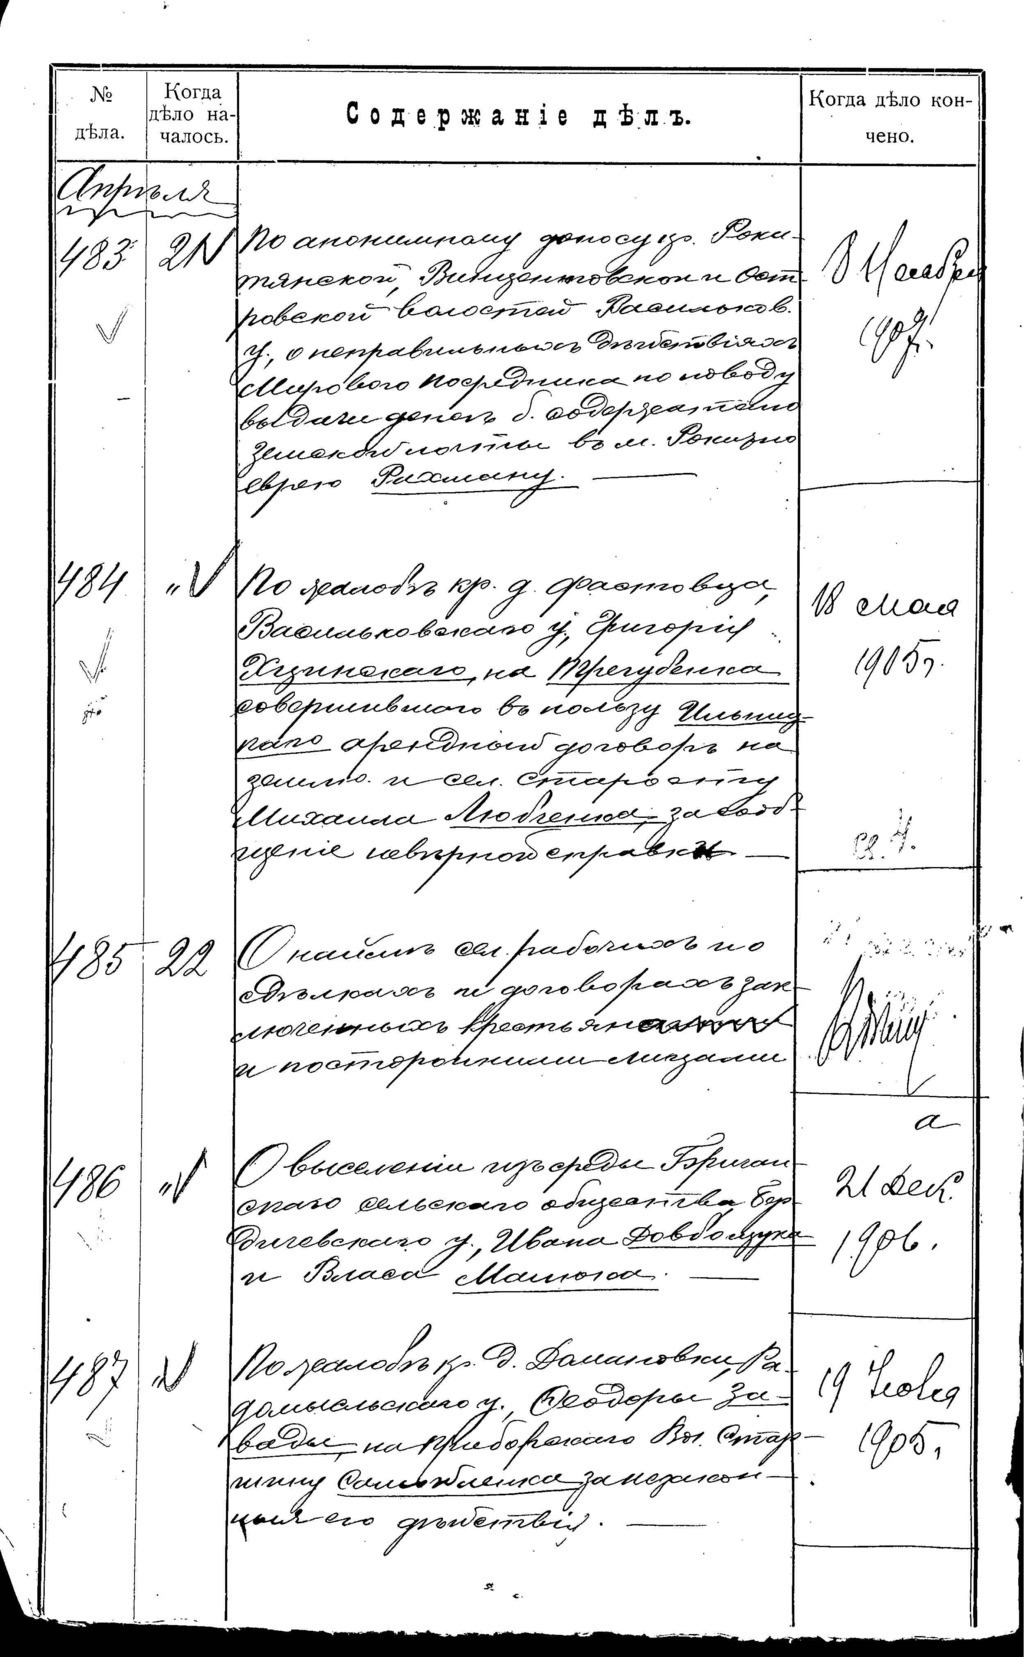 № дѣла.
Когда дѣло на-
чалось.
Содержаніе дѣлъ.
Когда дѣло кон-
чено.
Апрѣля
483 21
По анонимному доносу кр. Роки-
тянской, Винцентовской и Ост
ровской волостей Васильков.
у., о неправильныхъ дѣйствіяхъ
Мирового Посредника по поводу
выдачи денегъ б. содержателю
Земской почты въ м. Рокитно
еврею Рихману.
8 Ноября
1907г.
484 "
По жалобѣ кр. д. Фастовца,
Васильковскаго у., Григорія
на Трегубенка
совершившаго въ пользу
арендный договоръ на
землю и сел. старосту
Михаила Любченка, за сооб-
щеніе невѣрной справки
18 Мая
1905г.
485 22
О наймѣ сел. рабочихъ и о
сдѣлкахъ и договорахъ зак-
люченныхъ крестьянами
и посторонними лицами
486 "
О выселеніи изъ среды
скаго сельскаго общества, Бер
дичевскаго у., Ивана
и Власа Мацюка.
а
21 Дек.
1906.
487 "
По жалобѣ кр. д. Домановки, Ра-
домысльскаго у., Ѳеодоры За-
вады, на Приборскаго Вол. Стар-
шину за незакон-
ныя его дѣйствія.
19 Іюля
1905,